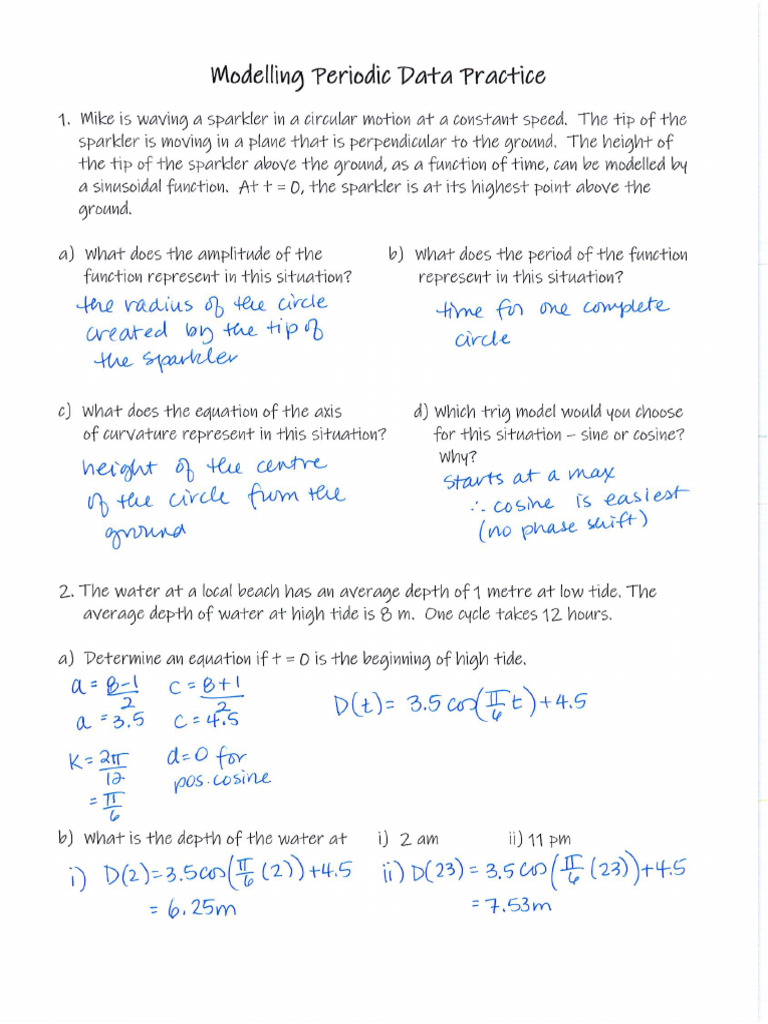 Modelling Periodic Data Practice
1. Mike is waving a sparkler in a circular motion at a constant speed. The tip of the
sparkler is moving in a plane that is perpendicular to the ground. The height of
the tip of the sparkler above the ground, as a function of time, can be modelled by
a sinusoidal function. At t = 0, the sparkler is at its highest point above the
ground.
a) What does the amplitude of the
function represent in this situation?
the radius of the circle
created by the tip of
the sparkler
b) What does the period of the function
represent in this situation?
time for one complete
circle
c) What does the equation of the axis
of curvature represent in this situation?
height of the centre
of the circle from the
ground
d) Which trig model would you choose
for this situation – sine or cosine?
Why?
starts at a max
∴ cosine is easiest
(no phase shift)
2. The water at a local beach has an average depth of 1 metre at low tide. The
average depth of water at high tide is 8 m. One cycle takes 12 hours.
a) Determine an equation if t = 0 is the beginning of high tide.
a = 8-1/2
a = 3.5
c = 8+1/2
c = 4.5
D(t) = 3.5cos(π/6 t) + 4.5
K = 2π/12
= π/6
d=0 for
pos. cosine
b) What is the depth of the water at i) 2 am ii) 11 pm
i) D(2) = 3.5cos(π/6 (2)) + 4.5
= 6.25m
ii) D(23) = 3.5cos(π/6 (23)) + 4.5
= 7.53m